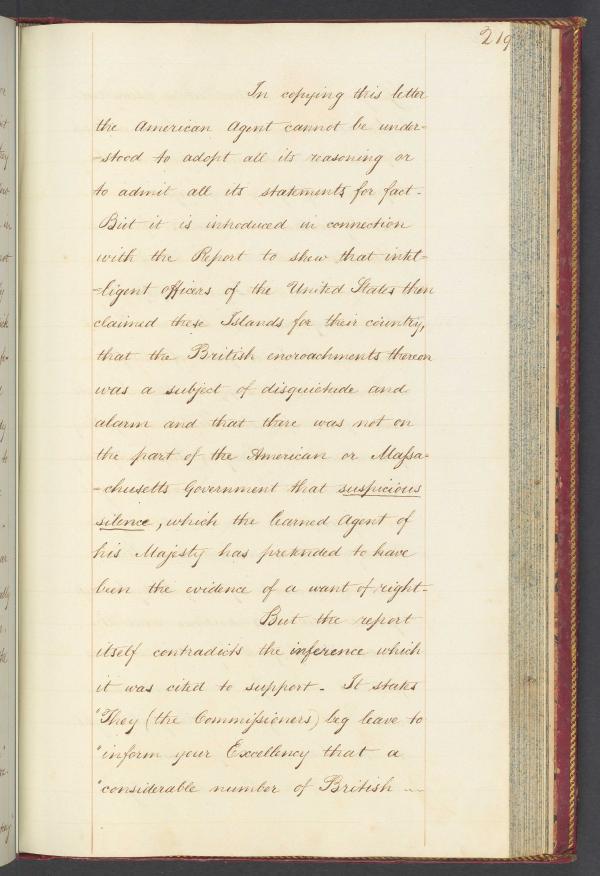 219
In copying this letter
the American Agent cannot be under=
=stood to adopt all its reasoning or
to admit all its statements for fact.
But it is introduced in connection
with the Report to shew that intel=
=ligent officers of the United States then
claimed these Islands for their country,
that the British encroachments thereon
was a subject of disquietude and
alarm and that there was not on
the part of the American or Massa=
=chusetts Government that suspicious
silence, which the learned Agent of
his Majesty has pretended to have
been the evidence of a want of right.
But the report
itself contradicts the inference which
it was cited to support. It states
"They (the Commissioners) beg leave to
"inform your Excellency that a
"considerable number of British